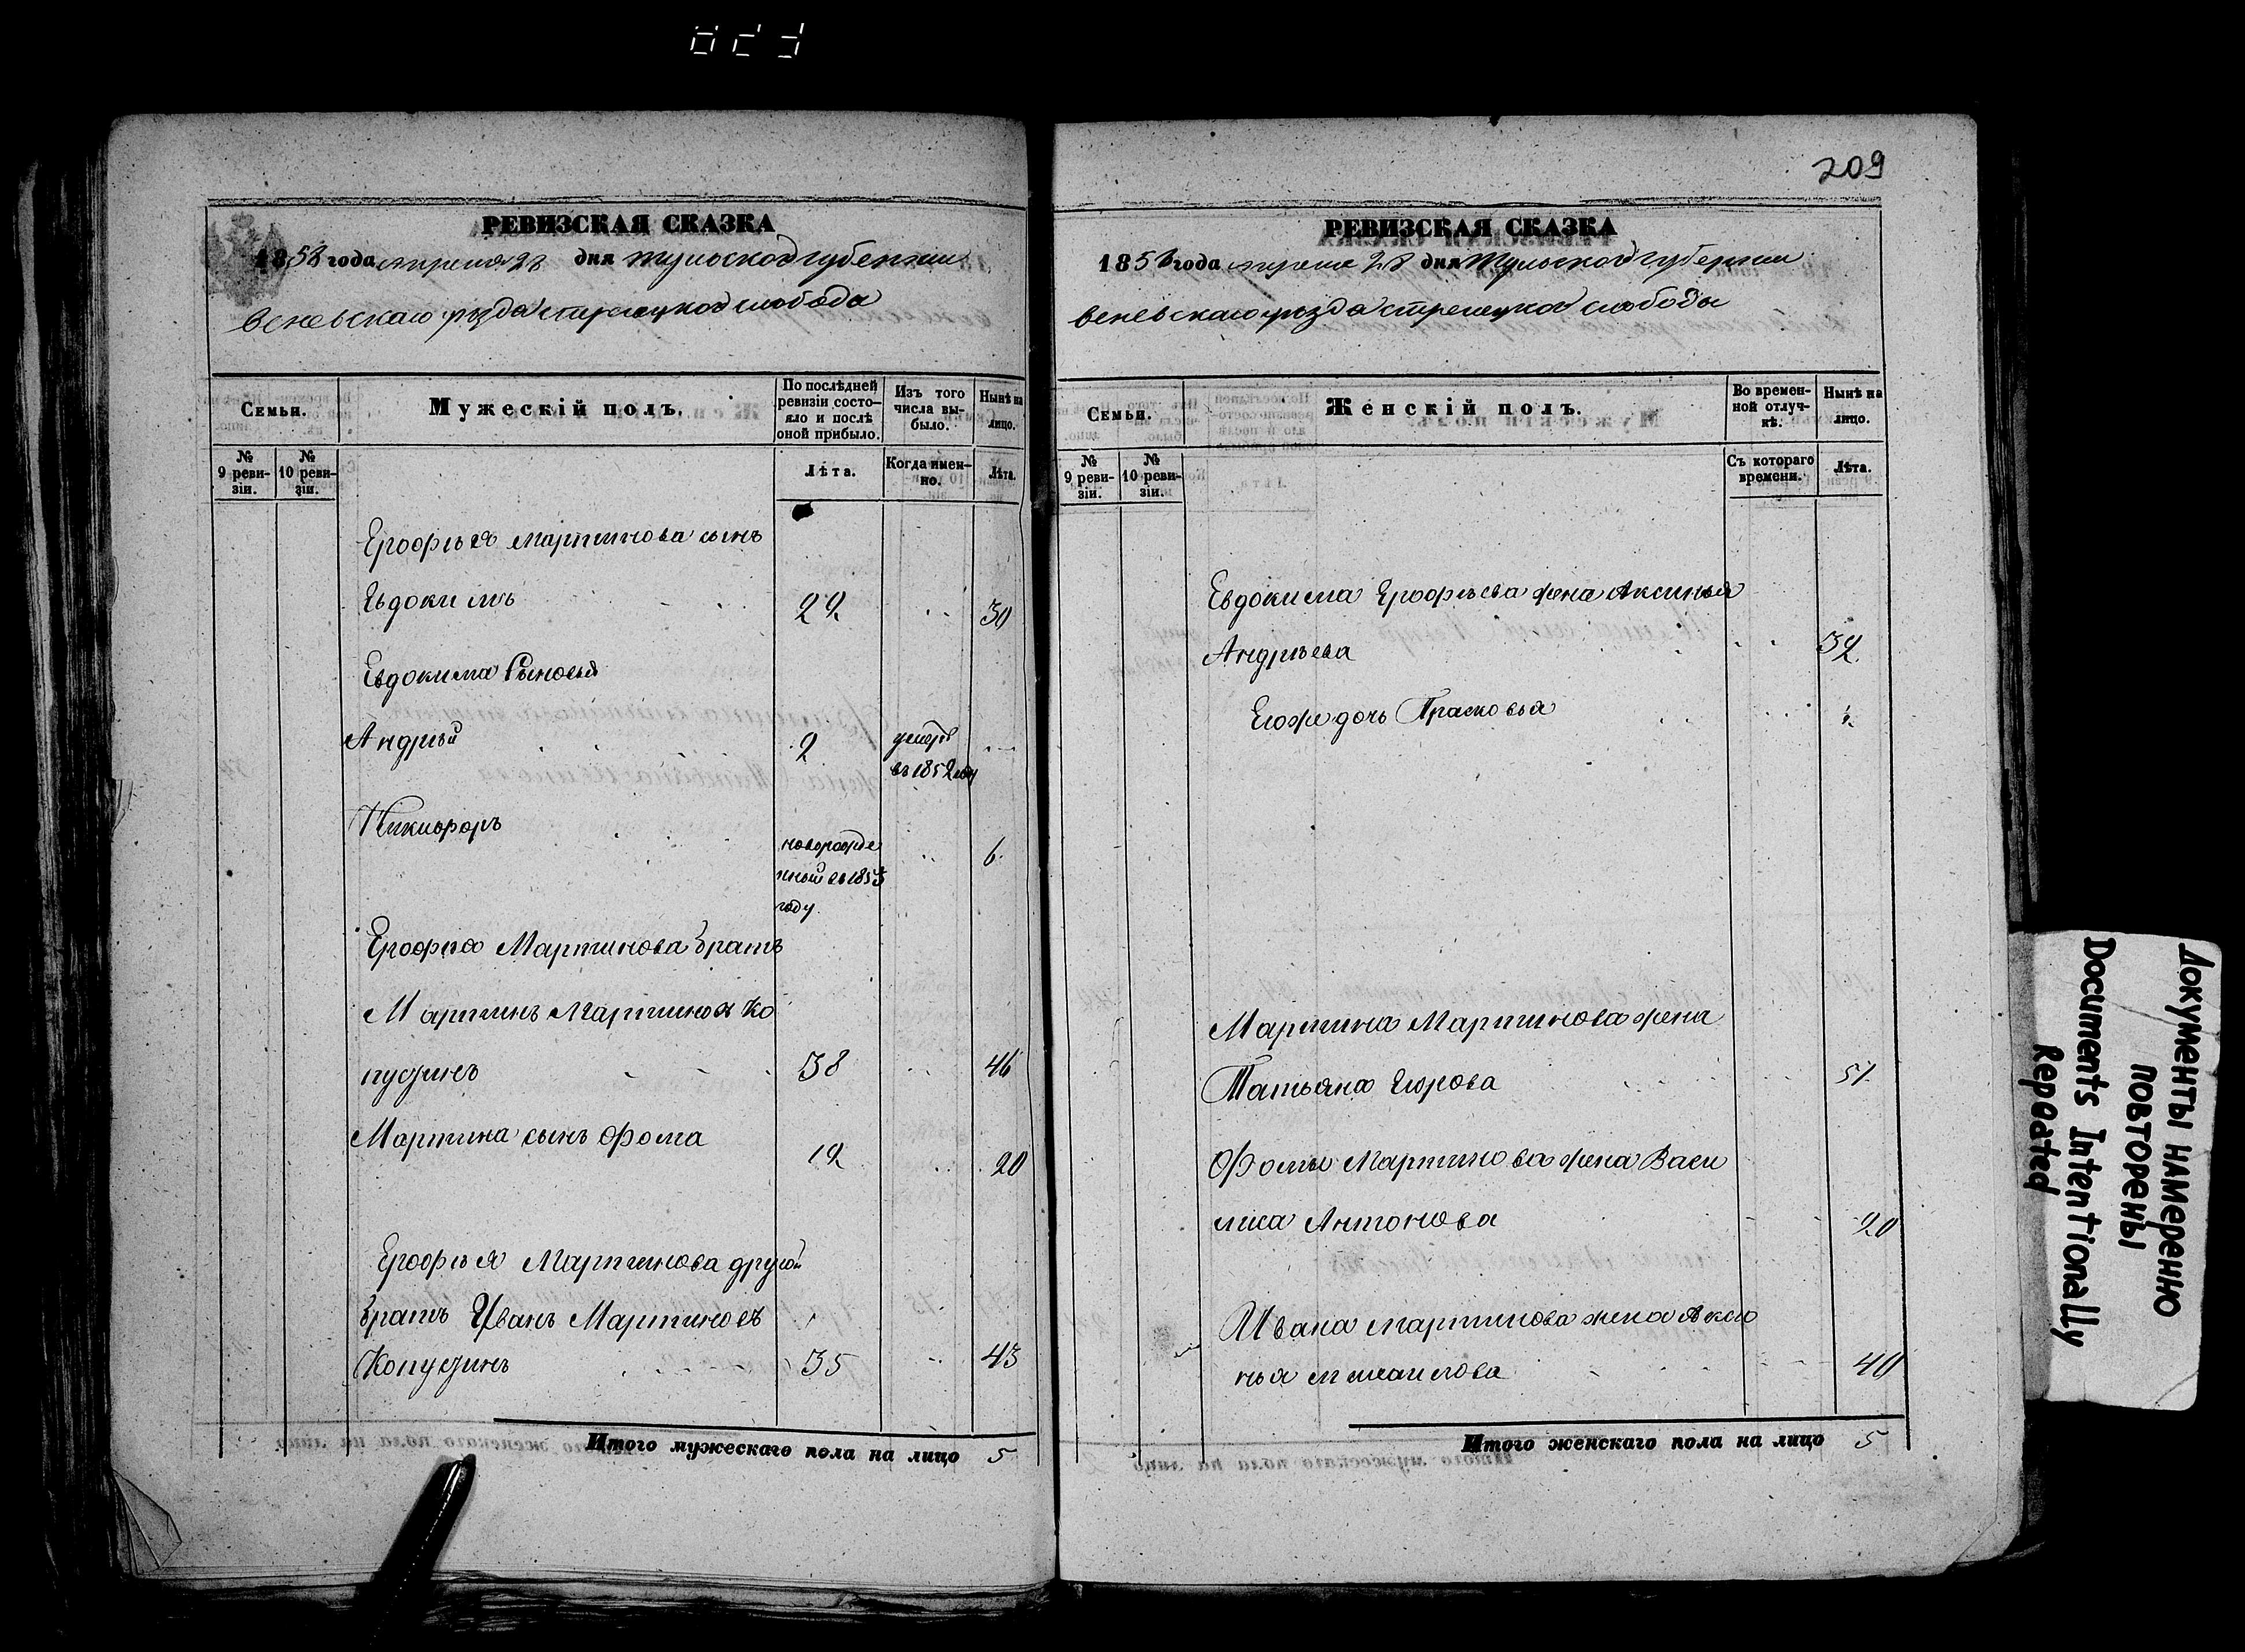 209
РЕВИЗСКАЯ СКАЗКА
1858 года апреля 28 дня тульской губернии
веневскаго уѣзда стрелецкой слободы
Семьи.
Мужескій полъ.
По послѣдней ревизіи состояло и послѣ оной прибыло.
Изъ того числа выбыло.
Нынѣ на лицо.
№ 9 ревизіи.
№ 10 ревизіи.
Лѣта.
Когда именно.
Лѣта.
Ерофѣя мартинова сынъ
Евдокимъ 22 30
Евдокима Сыновья
Андрѣй 2 умеръ
въ 1852 году
Никифоръ
новорожде 6
нный въ 1853
году
Ерофѣя Мартинова братъ
Мартинъ Мартиновъ Ко
пужинъ 38 46
Мартина сынъ Фома
12 20
Ерофѣя Мартинова другой
братъ Иванъ Мартиновъ
Копужинъ 35 43
Итого мужескаго пола на лицо 5
РЕВИЗСКАЯ СКАЗКА
1858 года апреля 28 дня Тульской губернии
веневскаго уѣзда стрелецкой слободы
Семьи.
Женскій полъ.
Во временной отлучкѣ.
Нынѣ на лицо.
№ 9 ревизіи.
№ 10 ревизіи.
Съ котораго времени.
Лѣта.
Евдокима Ерофѣева жена Аксинья
Андрѣева 32
Егожъ дочь Прасковья
Мартина Мартинова жена
Татьяна Егорова 51
Фомы Мартинова жена Васи
лиса Антонова 20
Ивана мартинова жена Акси
нья михаилова 40
Итого женскаго пола на лицо 5
Документы намеренно
повторены
Documents Intentionally
Repeated